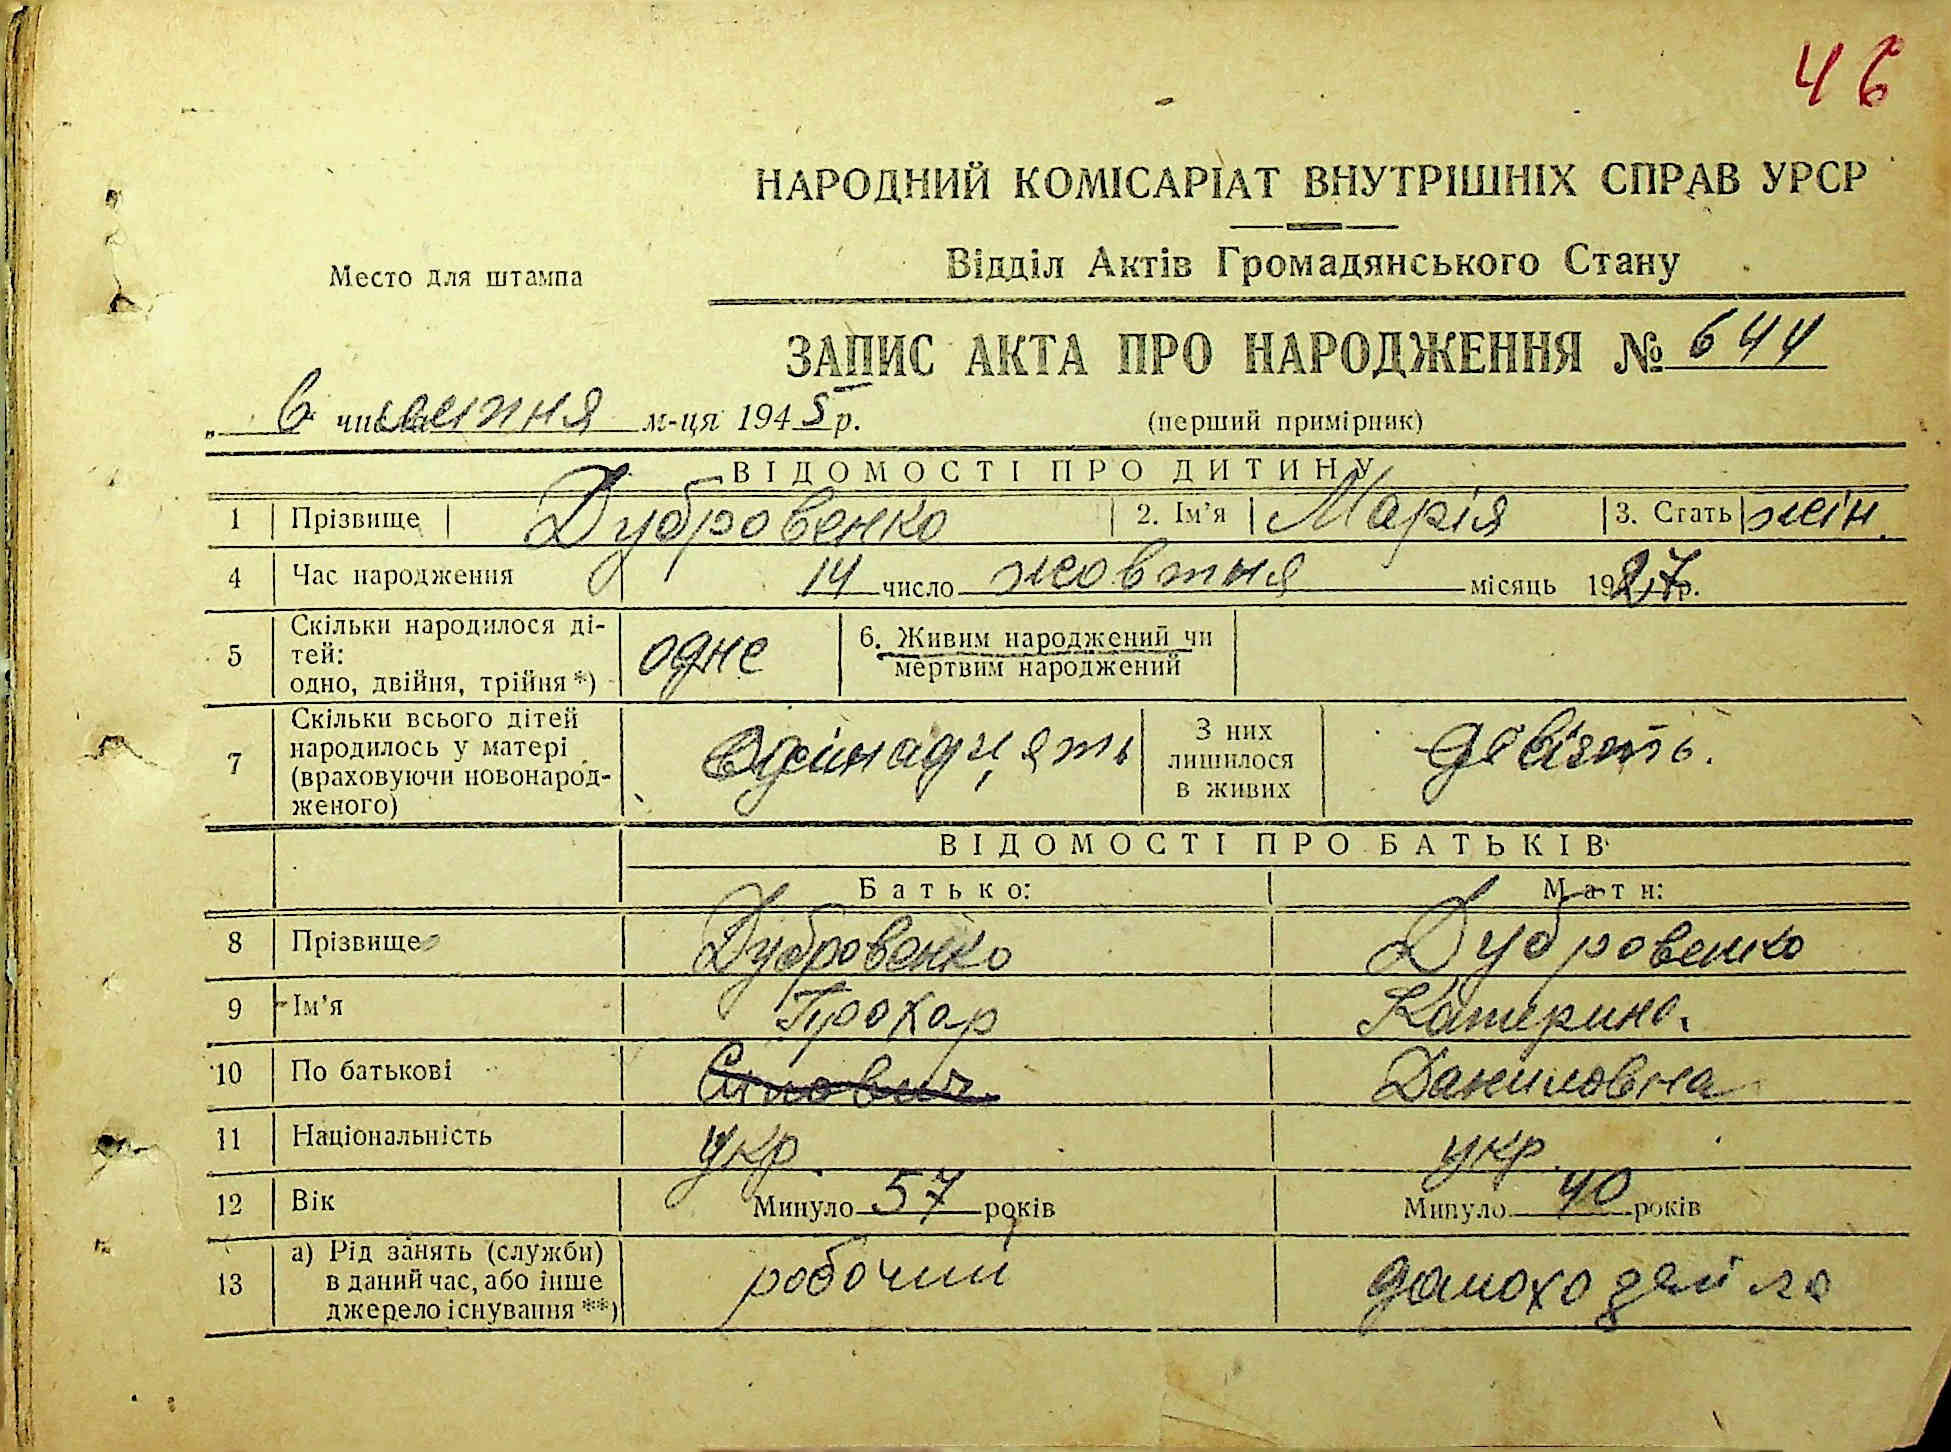 46
НАРОДНИЙ КОМІСАРІАТ ВНУТРІШНІХ СПРАВ УРСР
Відділ Актів Громадянського Стану
Место для штампа
ЗАПИС АКТА ПРО НАРОДЖЕННЯ № 644
„ 6 числа липня м-ця 1945 р.
(перший примірник)
ВІДОМОСТІ ПРО ДИТИНУ
1 Прізвище Дубровенко 2. Ім'я Марія 3. Стать жін.
4 Час народження 14 число жовтня місяць 1927 р.
5 Скільки народилося ді-
тей:
одно, двійня, трійня *)
одне
6. Живим народжений чи
мертвим народжений
7 Скільки всього дітей
народилось у матері
(враховуючи новонарод-
женого)
одінадцять
З них
лишилося
в живих
девізть.
ВІДОМОСТІ ПРО БАТЬКІВ
Батько: Мати:
8 Прізвище Дубровенко Дубровенко
9 Ім'я Прохор Катерина
10 По батькові Силович Даниловна
11 Національність укр. укр.
12 Вік Минуло 57 років Минуло 40 років
13 а) Рід занять (служби)
в даний час, або інше
джерело існування **)
робочий